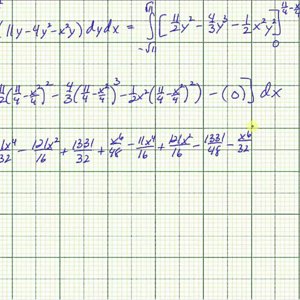 (11y-4y²-x²y) dy dx = ∫_{-√11}^{√11} [11/2 y² - 4/3 y³ - 1/2 x²y²]_0^{11/4-x²/4}
11/2(11/4-x²/4)² - 4/3(11/4-x²/4)³ - 1/2x²(11/4-x²/4)²) - (0)] dx
11x⁴/32 - 121x²/16 + 1331/32 + x⁶/48 - 11x⁴/16 + 121x²/16 - 1331/48 - x⁶/32